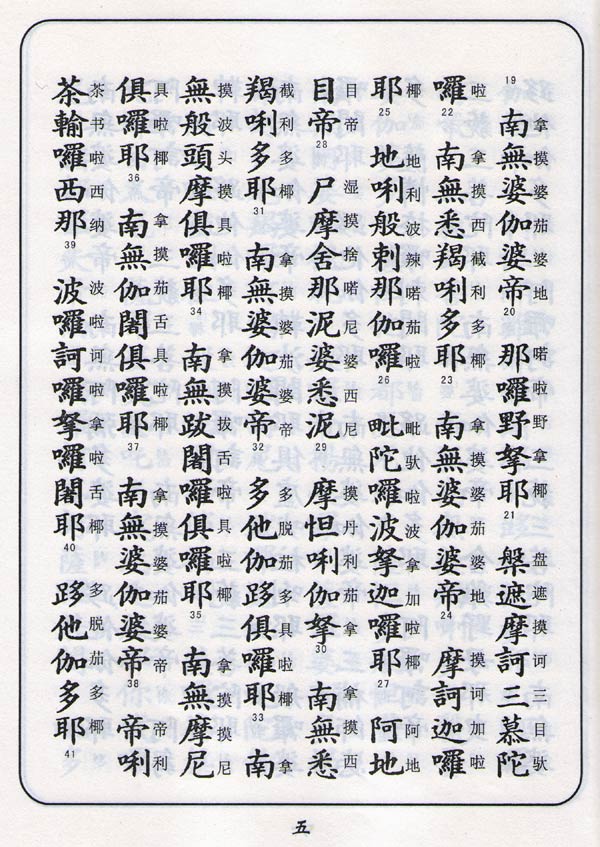 拿摸婆茄婆地 喏啦野拿椰 盘遮摸诃三目驮
19 南無婆伽婆帝 20 那囉野拏耶 21 槃遮摩訶三慕陀
啦 拿摸西截利多椰 拿摸婆茄婆地 摸诃加啦
囉 22 南無悉羯唎多耶 23 南無婆伽婆帝 24 摩訶迦囉
椰 地利波辣喏茄啦 毗驮啦波拿加啦椰 阿地
耶 25 地唎般剌那伽囉 26 毗陀囉波拏迦囉耶 27 阿地
目帝 湿摸捨喏尼婆西 摸丹利茄拿 拿摸西
目帝 28 尸摩舍那泥婆悉泥 29 摩怛唎伽拏 30 南無悉
截利多椰 拿摸婆茄婆帝 多脱茄多具啦椰 拿
羯唎多耶 31 南無婆伽婆帝 32 多他伽跢俱囉耶 33 南
摸波头摸具啦椰 拿摸拔舌啦具啦椰 拿摸摸尼
無般頭摩俱囉耶 34 南無跋闍囉俱囉耶 35 南無摩尼
具啦椰 拿摸茄舌具啦椰 拿摸婆茄婆帝 帝利
俱囉耶 36 南無伽闍俱囉耶 37 南無婆伽婆帝 38 帝唎
茶书啦西纳 波啦诃啦拿啦舌椰 多脱茄多椰
茶輸囉西那 39 波囉訶囉拏囉闍耶 40 跢他伽多耶 41
五